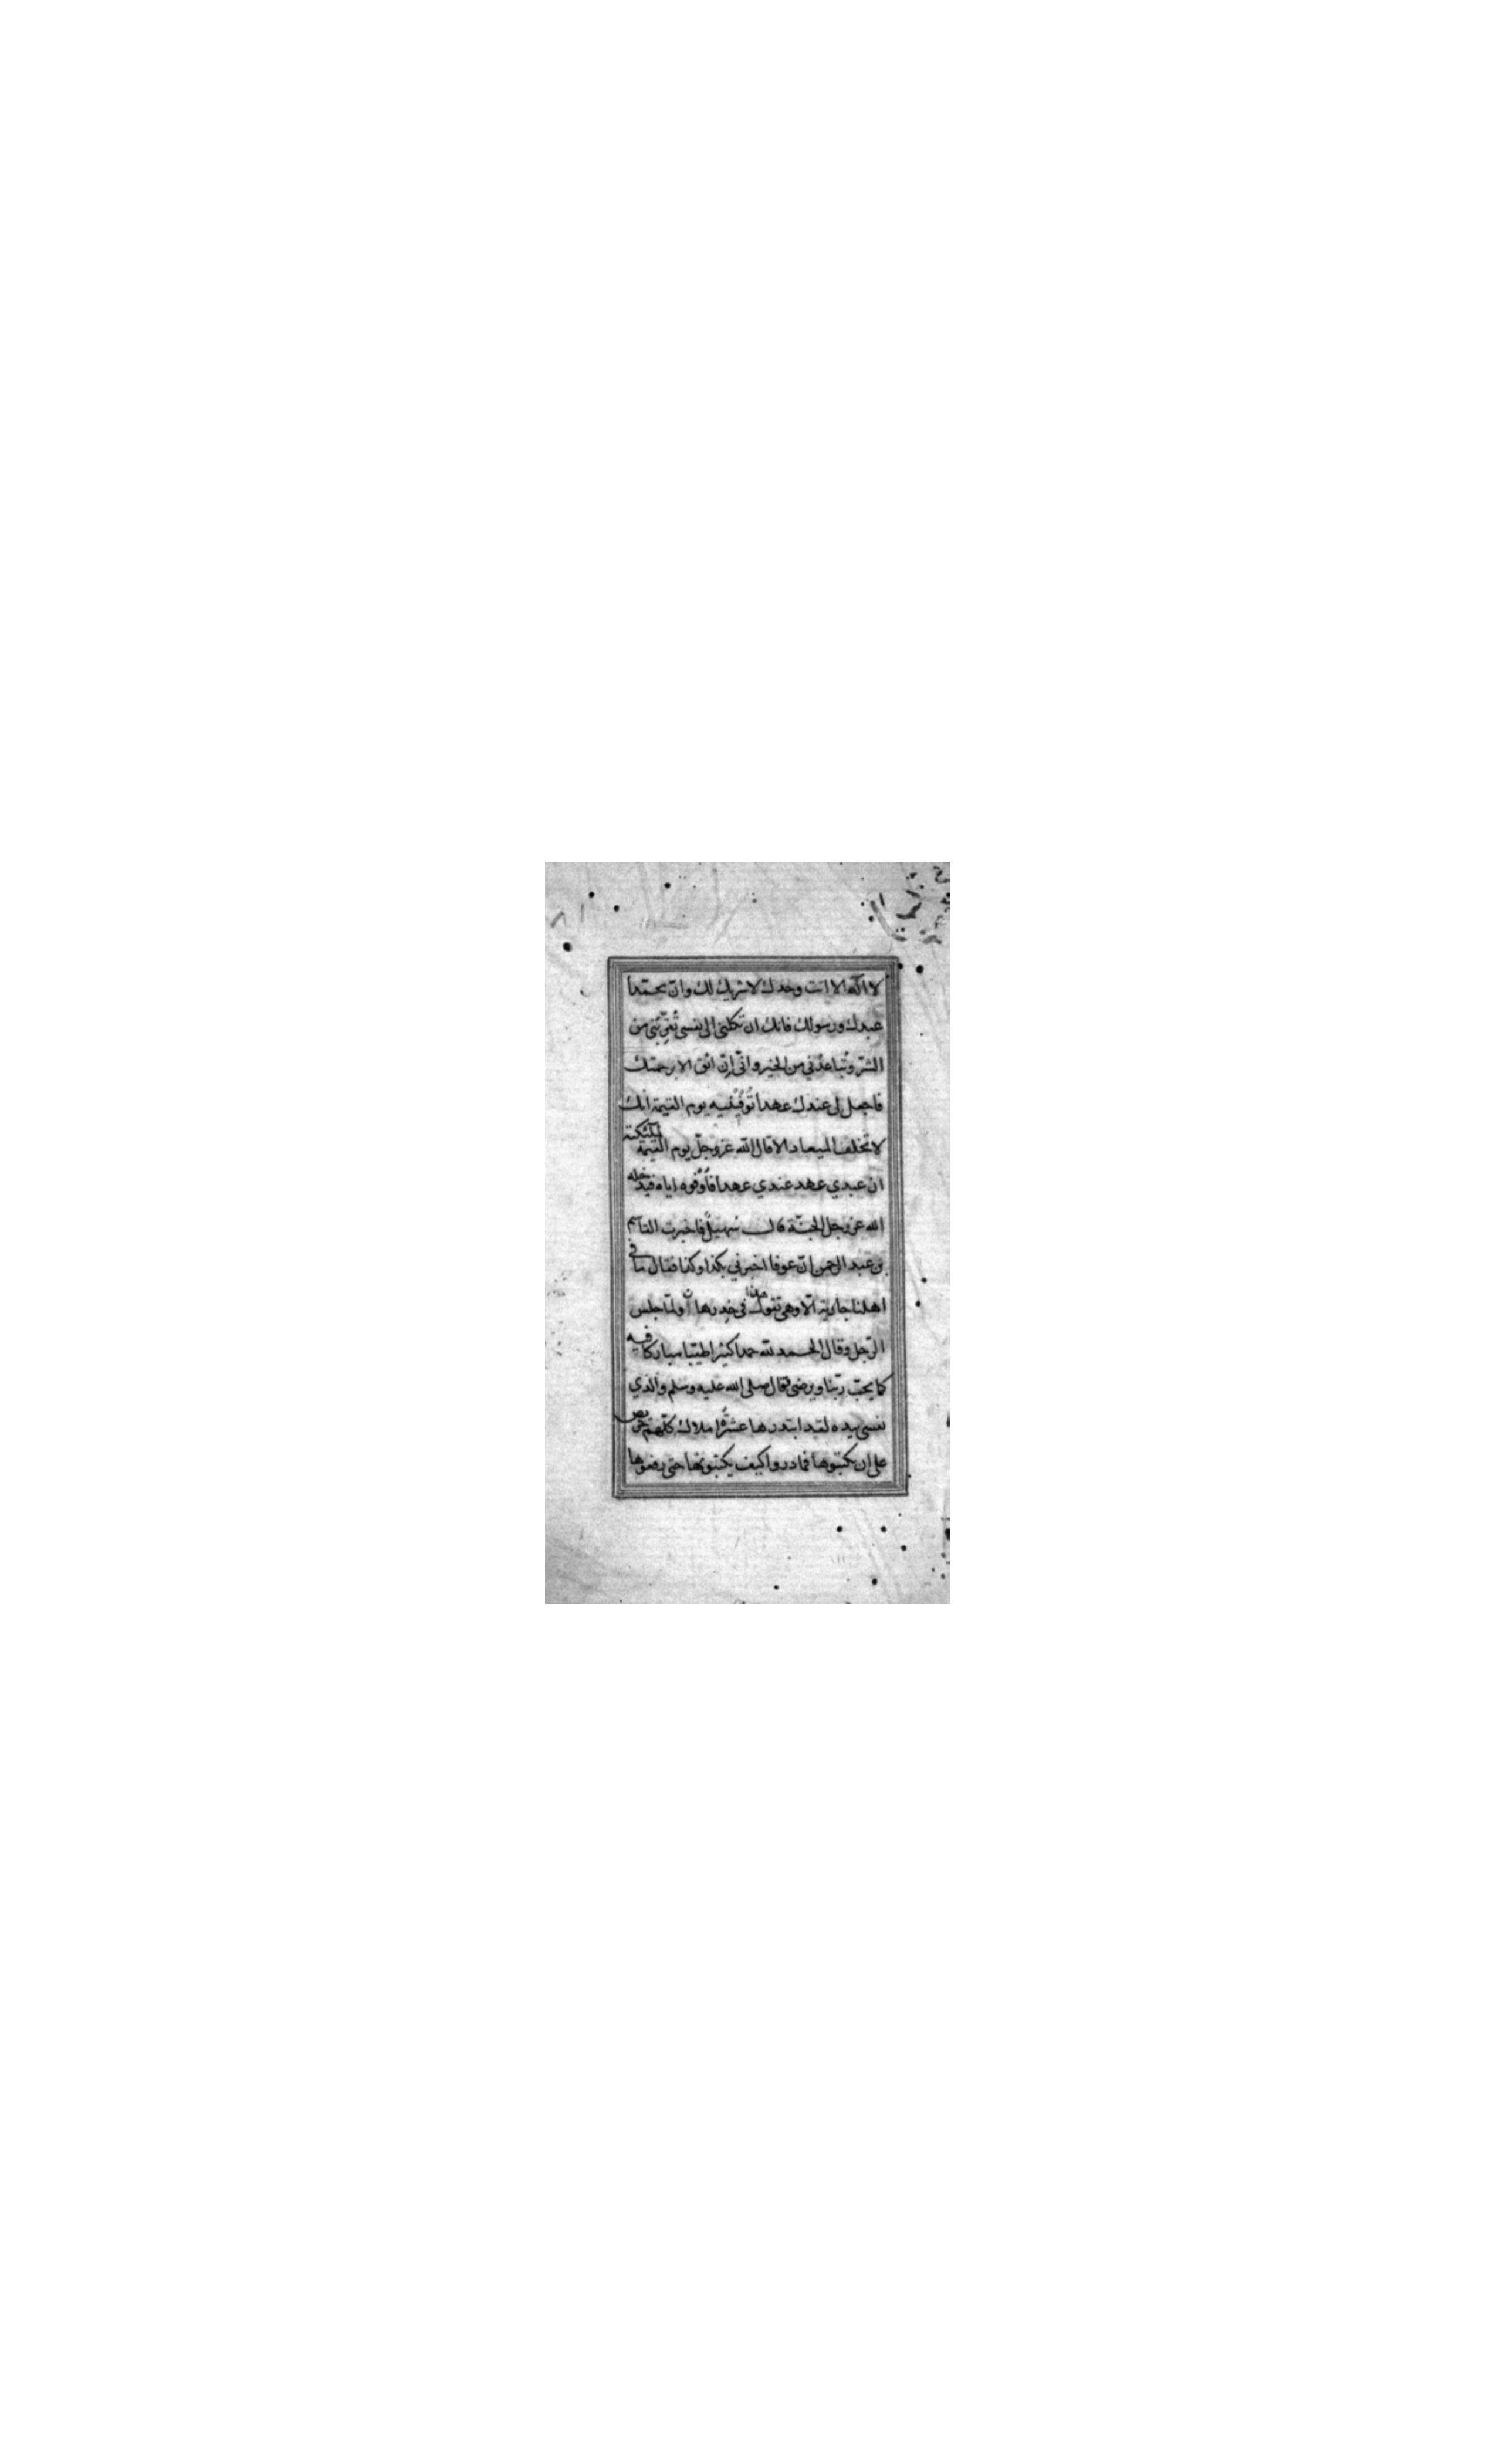 لا اله الا انت وحدك لا شريك لك وانّ محمّدا
عبدك ورسولك فانك ان تكلنى الى نفسى تُقرِّبُنى من
الشرّ وتُباعدْني من الخير وانّى إنْ اثق الا برحمتك
فاجعل لى عندك عهدا تُوَفّينيه يوم القيمة انك
لا تخلف الميعاد الا قال الله عزوجلّ يوم القيمة لملٰئكته
ان عبدي عهد عندي عهدا فأَوْفوه اياه فيدخله
الله عزوجل الجنّة قال سهيلٌ فاخبرت القاسم
بن عبد الرحمن انّ عوفا اخبرني بكذا وكذا فقال ما في
اهلنا جارية الّا وهى تقول هذا فى خدرها ولمّا جلس
الرّجل وقال الحمد لله حمدا كثيرا طيّبا مباركا فيه
كما يحبّ ربّنا ويرضى فقال صلى الله عليه وسلم والذي
نفسى بيده لقد ابتدرها عشرةُ املاك كلّهم حريص
على ان يكتبوها فما دروا كيف يكتبونها حتى رفعوها